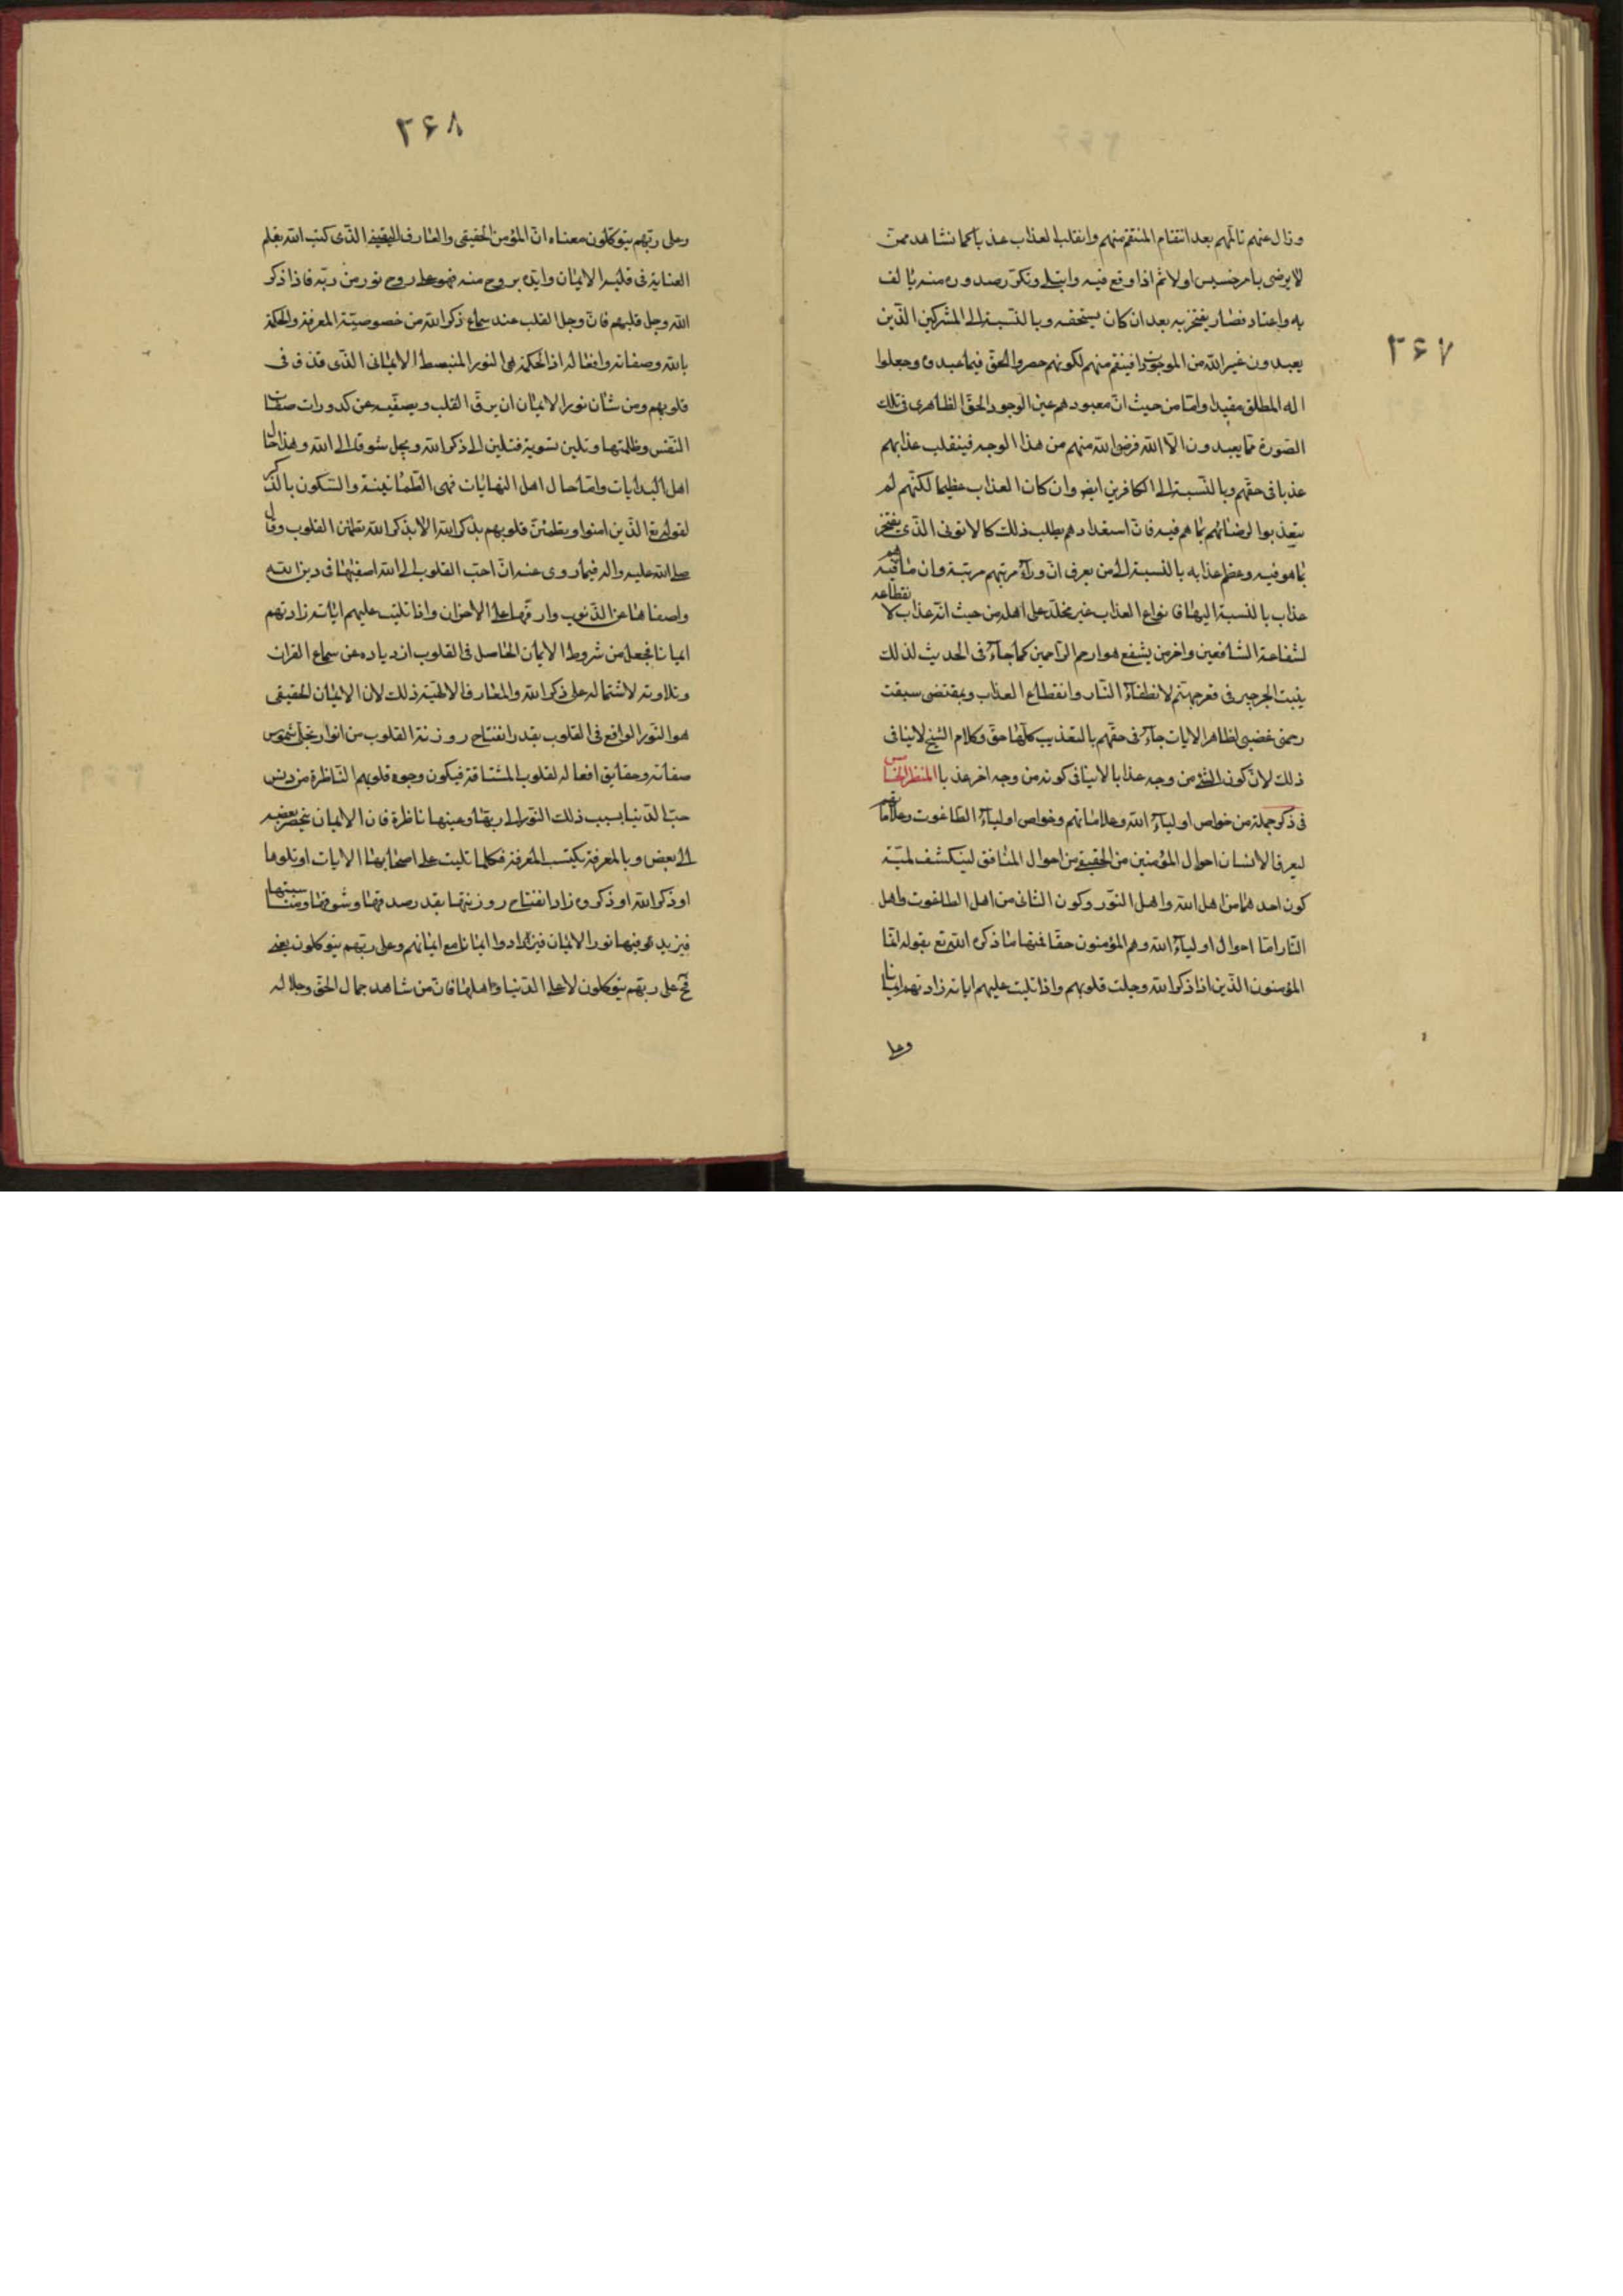 ۲۶۷
وزال عنهم تالّمهم بعد انتقام المنتقم منهم وانقلب العذاب عذبا كما نشاهد ممّن
لا يرضى بامر خسيس اولا ثم اذا وقع فيه وابتلى وتكرّر صدوره منه تالف
به واعتاد فصار يفتخر به بعد ان كان يستخفه وبالنّسبة الى المشركين الذّين
يعبدون غير الله من الموجودات فينتقم منهم لكونهم حصروا الحقّ فيما عبدوه وجعلوا
اله المطلق مقيدا وامّا من حيث انّ معبودهم عين الوجود الحقّ الظاهرى فى تلك
الصّورة فما يعبدون الّا الله فرضى الله منهم من هذا الوجه فينقلب عذابهم
عذبا فى حقّهم وبالنّسبة الى الكافرين ايض وان كان العذاب عظيما لكنّهم لم
يتعذبوا لرضائهم بما هم فيه فانّ استعدادهم يطلب ذلك كالاتونى الذّى يفتخر
بما هو فيه وعظم عذابه بالنسبة الى من يعرف انّ ورآء مرتبتهم مرتبة وان ما هم فيه
عذاب بالنسبة اليها فانواع العذاب غير مخلّد على اهله من حيث انّه عذاب لانقطاعه
لشفاعة الشافعين واخر من يشفع هو ارحم الرّاحمين كما جآء فى الحديث لذلك
ينبت الجرجير فى قعر جهنّم لانطفآء النّار وانقطاع العذاب وبمقتضى سبقت
رحمتى غضبى لظاهر الايات جآء فى حقّهم بالتعذيب كلّها حقّ وكلام الشيخ لا ينافى
ذلك لانّ كون الشئ من وجه عذابا لا ينافى كونه من وجه اخر عذبا المنظر الخامس
فى ذكر جملة من خواص اوليآء الله وعلاماتهم وخواص اوليآء الطاغوت وعلاماتهم
ليعرف الانسان احوال المؤمنين من الحقيقة من احوال المنافق لينكشف لميّة
كون احدهما من اهل الله واهل النّور وكون الثانى من اهل الطاغوت واهل
النّار امّا احوال اوليآء الله وهم المؤمنون حقا فمنها ما ذكره الله تع بقوله انّما
المؤمنون الذّين اذا ذكر الله وجلت قلوبهم واذا تليت عليهم اياته زادتهم ايمانا
وعلى
۲۶۸
وعلى ربّهم يتوكّلون معناه انّ المؤمن الحقيقى والعارف اليقينى الذّى كتب الله بقلم
العناية فى قلبه الايمان وايّده بروح منه فهو على روح نور من ربّه فاذا ذكر
الله وجل قلبهم فانّ وجل القلب عند سماع ذكر الله من خصوصيّة المعرفة والحكمة
بالله وصفاته وافعاله اذ الحكمة هى النور المنبسط الايمانى الذّى قذف فى
قلوبهم ومن شان نور الايمان ان يرقّ القلب ويصفّيه عن كدورات صفات
النّفس وظلمتها وتلين تسوية فتلين الى ذكر الله ويجل شوقا الى الله وهذا حال
اهل البدايات وامّا حال اهل النهايات فهى الطّمانينة والسّكون بالذّكر
لقوله تع الذّين امنوا ويطمئنّ قلوبهم بذكر الله الا بذكر الله تطمئن القلوب وقال
صلى الله عليه واله فيما روى عنه انّ احبّ القلوب الى الله اصفيها فى دين الله
واصفاها عن الذّنوب وارقّها على الاخوان واذا تليت عليهم اياته زادتهم
ايمانا فجعل من شروط الايمان الحاصل فى القلوب ازدياده عن سماع القران
وتلاوته لاشتماله على ذكر الله والمعارف الالهيّة ذلك لان الايمان الحقيقى
هو النّور الواقع فى القلوب بقدر انفتاح روزنة القلوب من انوار تجلّى شموس
صفاته وحقايق افعاله لقلوب المشتاقة فيكون وجوه قلوبهم النّاظرة من دنس
حبّ الدّنيا بسبب ذلك النّور الى ربّها وعينها ناظرة فان الايمان ينجصر بعضه
الى بعض وبالمعرفة يكتسب المعرفة فكلما تليت على اصحابها الايات او تلوها
او ذكر الله او ذكروه زاد انفتاح روزنتها بقدر صدقها وشوقها ومناسبتها
فيزيد هو فيها نور الايمان فيزدادوا ايمانا مع ايمانهم وعلى ربهم يتوكلون يعنى
فح على ربّهم يتوكلون لا على الدّنيا واهلها فانّ من شاهد جمال الحقّ وجلاله